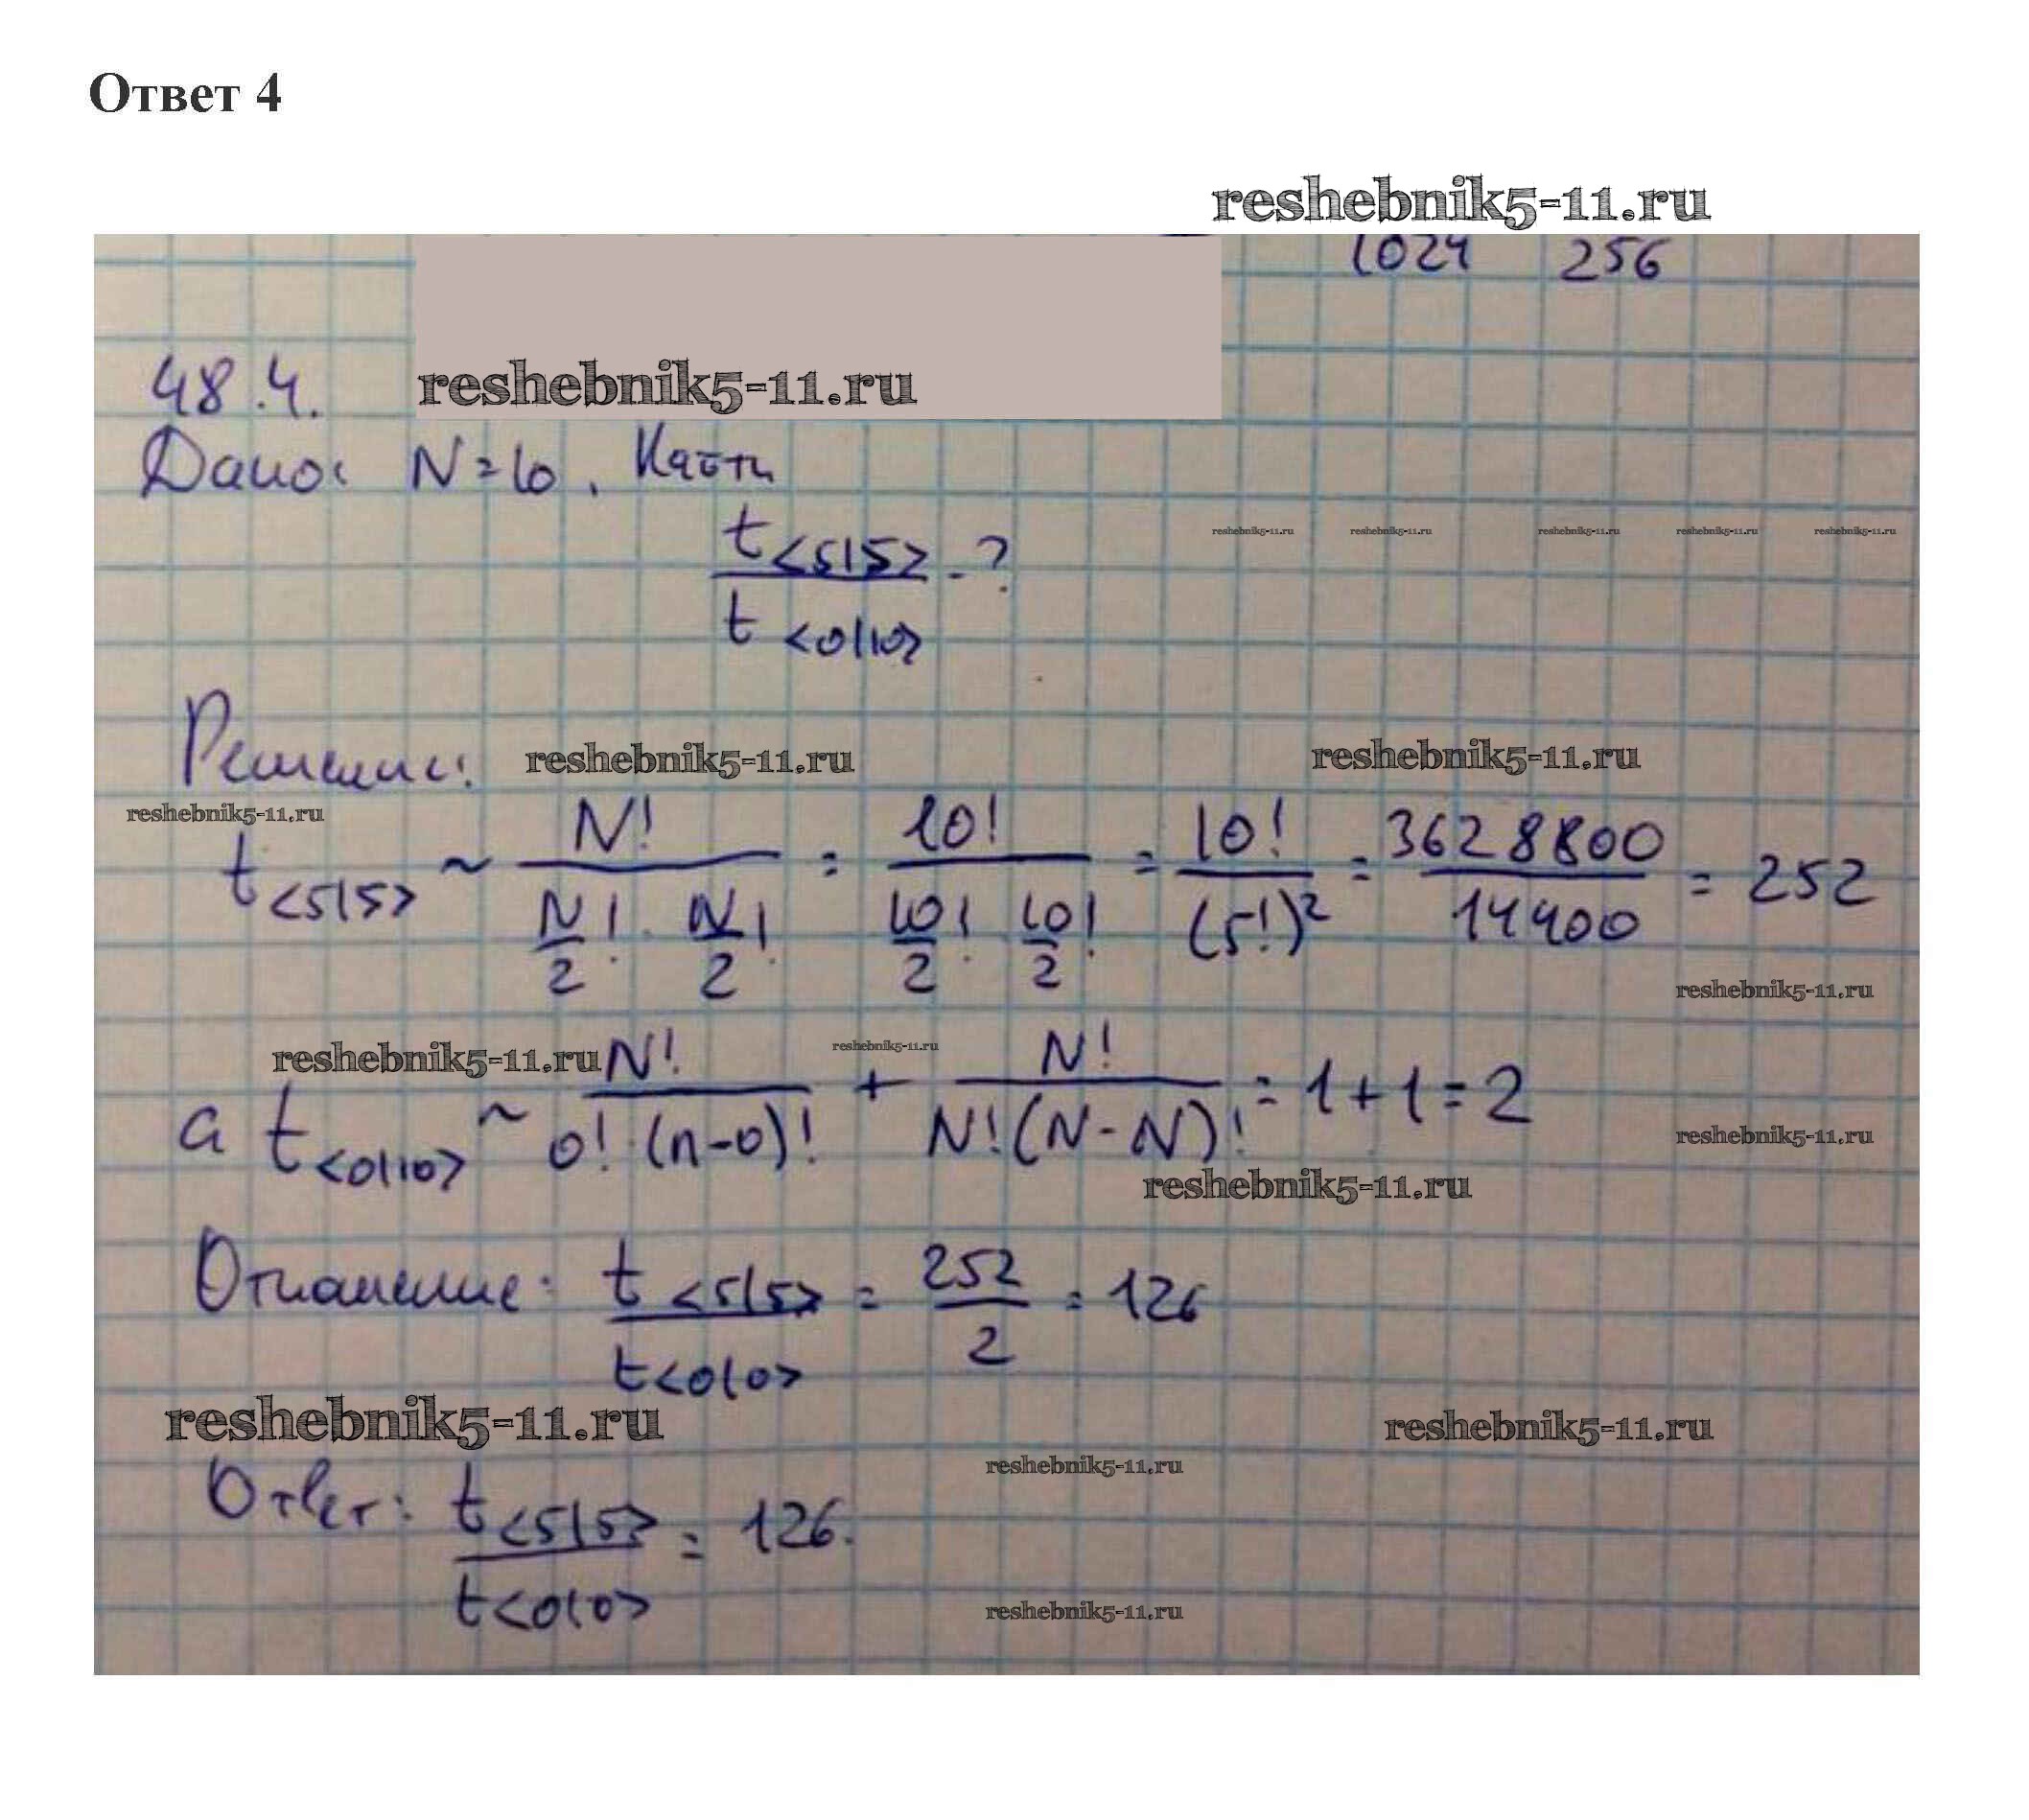 Ответ 4
reshebnik5-11.ru
1024 256
48.4. reshebnik5-11.ru
Дано: N=10.
t<5|5> - ?
reshebnik5-11.ru reshebnik5-11.ru reshebnik5-11.ru reshebnik5-11.ru reshebnik5-11.ru
t<0|10>
Решение: reshebnik5-11.ru reshebnik5-11.ru
reshebnik5-11.ru
t<5|5> ~ N!/(N/2! · N/2!) = 10!/(10/2! · 10/2!) = 10!/(5!)² = 3628800/14400 = 252
reshebnik5-11.ru
reshebnik5-11.ru reshebnik5-11.ru
а t<0|10> ~ N!/(0!·(n-0)!) + N!/(N!(N-N)!) = 1+1=2
reshebnik5-11.ru
reshebnik5-11.ru
Отношение: t<5|5>/t<0|0> = 252/2 = 126
reshebnik5-11.ru reshebnik5-11.ru
reshebnik5-11.ru
Ответ: t<5|5>/t<0|0> = 126.
reshebnik5-11.ru